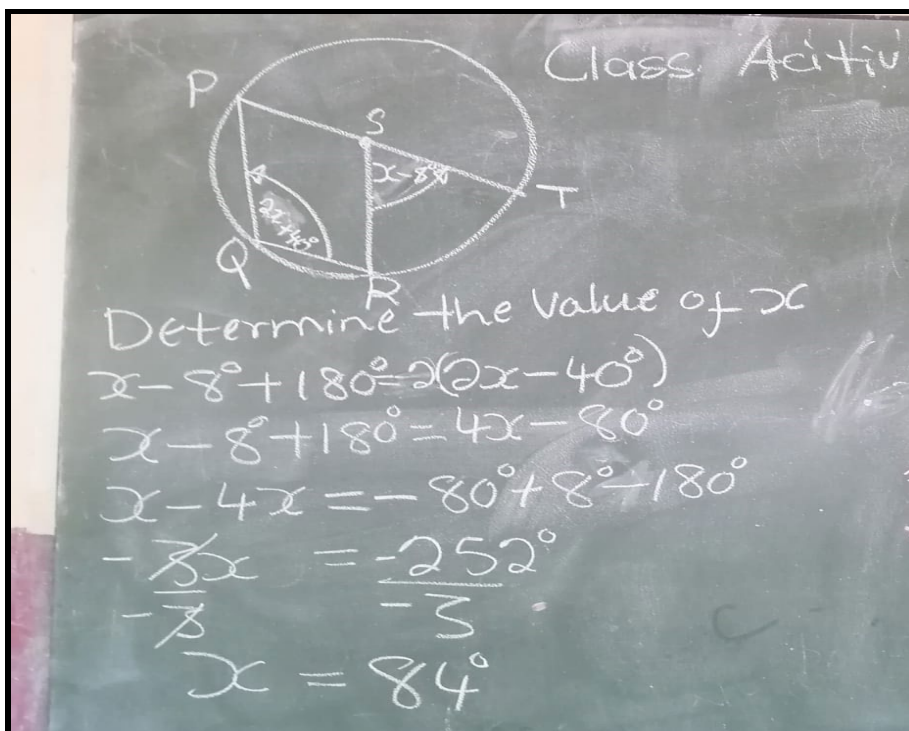 Class Acitiv
P
S
x-8°
T
2x+40°
Q
R
Determine the value of x
x-8°+180°=2(2x-40°)
x-8°+180°=4x-80°
x-4x=-80°+8°-180°
-3x = -252°
-3 -3
x = 84°